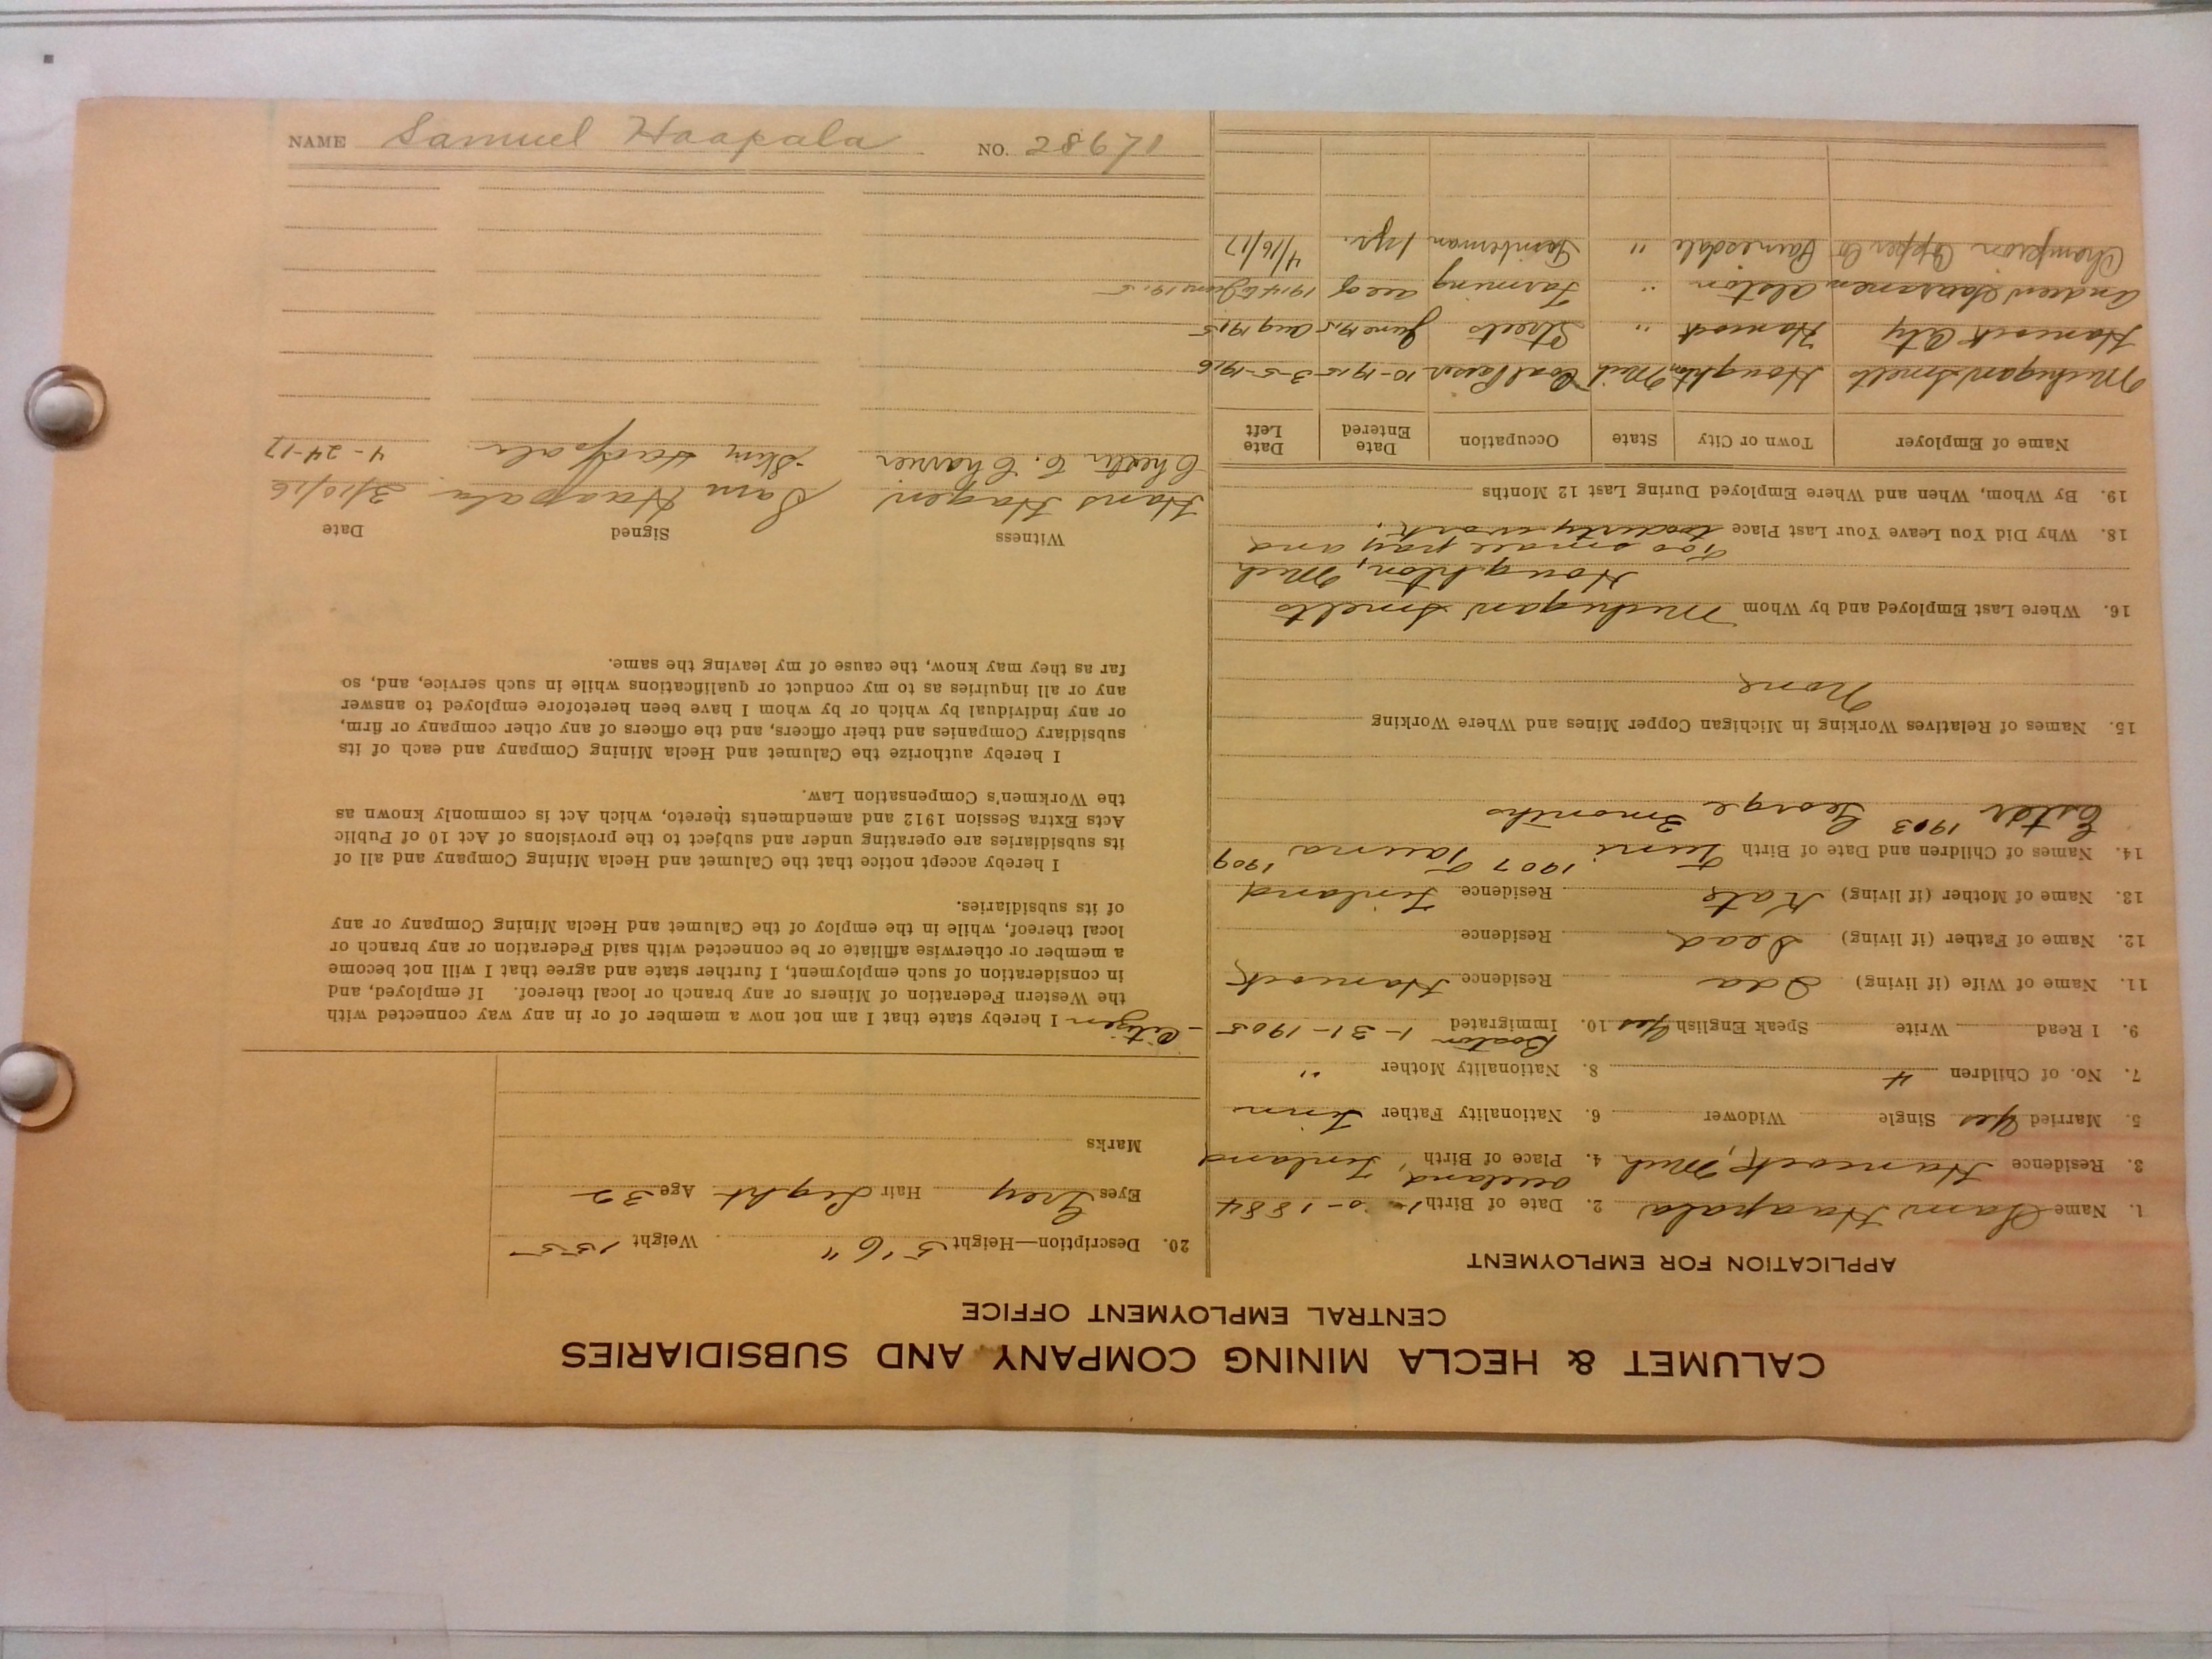 CALUMET & HECLA MINING COMPANY AND SUBSIDIARIES
CENTRAL EMPLOYMENT OFFICE
APPLICATION FOR EMPLOYMENT
1. Name Sam Haapala 2. Date of Birth 1884
3. Residence Hancock, Mich 4. Place of Birth Finland
5. Married Yes Single Widower 6. Nationality Father Finn
7. No. of Children 4 8. Nationality Mother "
9. I Read Write Speak English Yes 10. Immigrated Boston 1-31-1905
11. Name of Wife (if living) Ida Residence Hancock
12. Name of Father (if living) Dead Residence
13. Name of Mother (if living) Kate Residence Finland
14. Names of Children and Date of Birth 1907 1909
Ester 1903 George 3 months
15. Names of Relatives Working in Michigan Copper Mines and Where Working
None
16. Where Last Employed and by Whom Michigan Smelts
Houghton, Mich
18. Why Did You Leave Your Last Place Too small pay and
too dirty work.
19. By Whom, When and Where Employed During Last 12 Months
Name of Employer Town or City State Occupation Date Entered Date Left
Michigan Smelts Houghton Mich Coal Passer 10-1915 3-5-1916
Hancock City Hancock " Streets June 1915 Aug 1915
Andrew Alston " Farming all of 1914 to June 1915
Champion Copper Co Painesdale " Timberman 1 yr. 4/16/17
20. Description—Height 5' 6" Weight 155
Eyes Grey Hair Light Age 32
Marks
Citizen –
I hereby state that I am not now a member of or in any way connected with
the Western Federation of Miners or any branch or local thereof. If employed, and
in consideration of such employment, I further state and agree that I will not become
a member or otherwise affiliate or be connected with said Federation or any branch or
local thereof, while in the employ of the Calumet and Hecla Mining Company or any
of its subsidiaries.
I hereby accept notice that the Calumet and Hecla Mining Company and all of
its subsidiaries are operating under and subject to the provisions of Act 10 of Public
Acts Extra Session 1912 and amendments thereto, which Act is commonly known as
the Workmen's Compensation Law.
I hereby authorize the Calumet and Hecla Mining Company and each of its
subsidiary Companies and their officers, and the officers of any other company or firm,
or any individual by which or by whom I have been heretofore employed to answer
any or all inquiries as to my conduct or qualifications while in such service, and, so
far as they may know, the cause of my leaving the same.
Witness Signed Date
Hans Hagen Sam Haapala 3/10/16
Chester C. Haapala 4-24-17
NAME Samuel Haapala NO. 28671